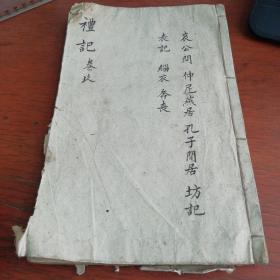 哀公問 仲尼燕居 孔子閒居 坊記
表記 緇衣 奔喪
禮記 卷玖